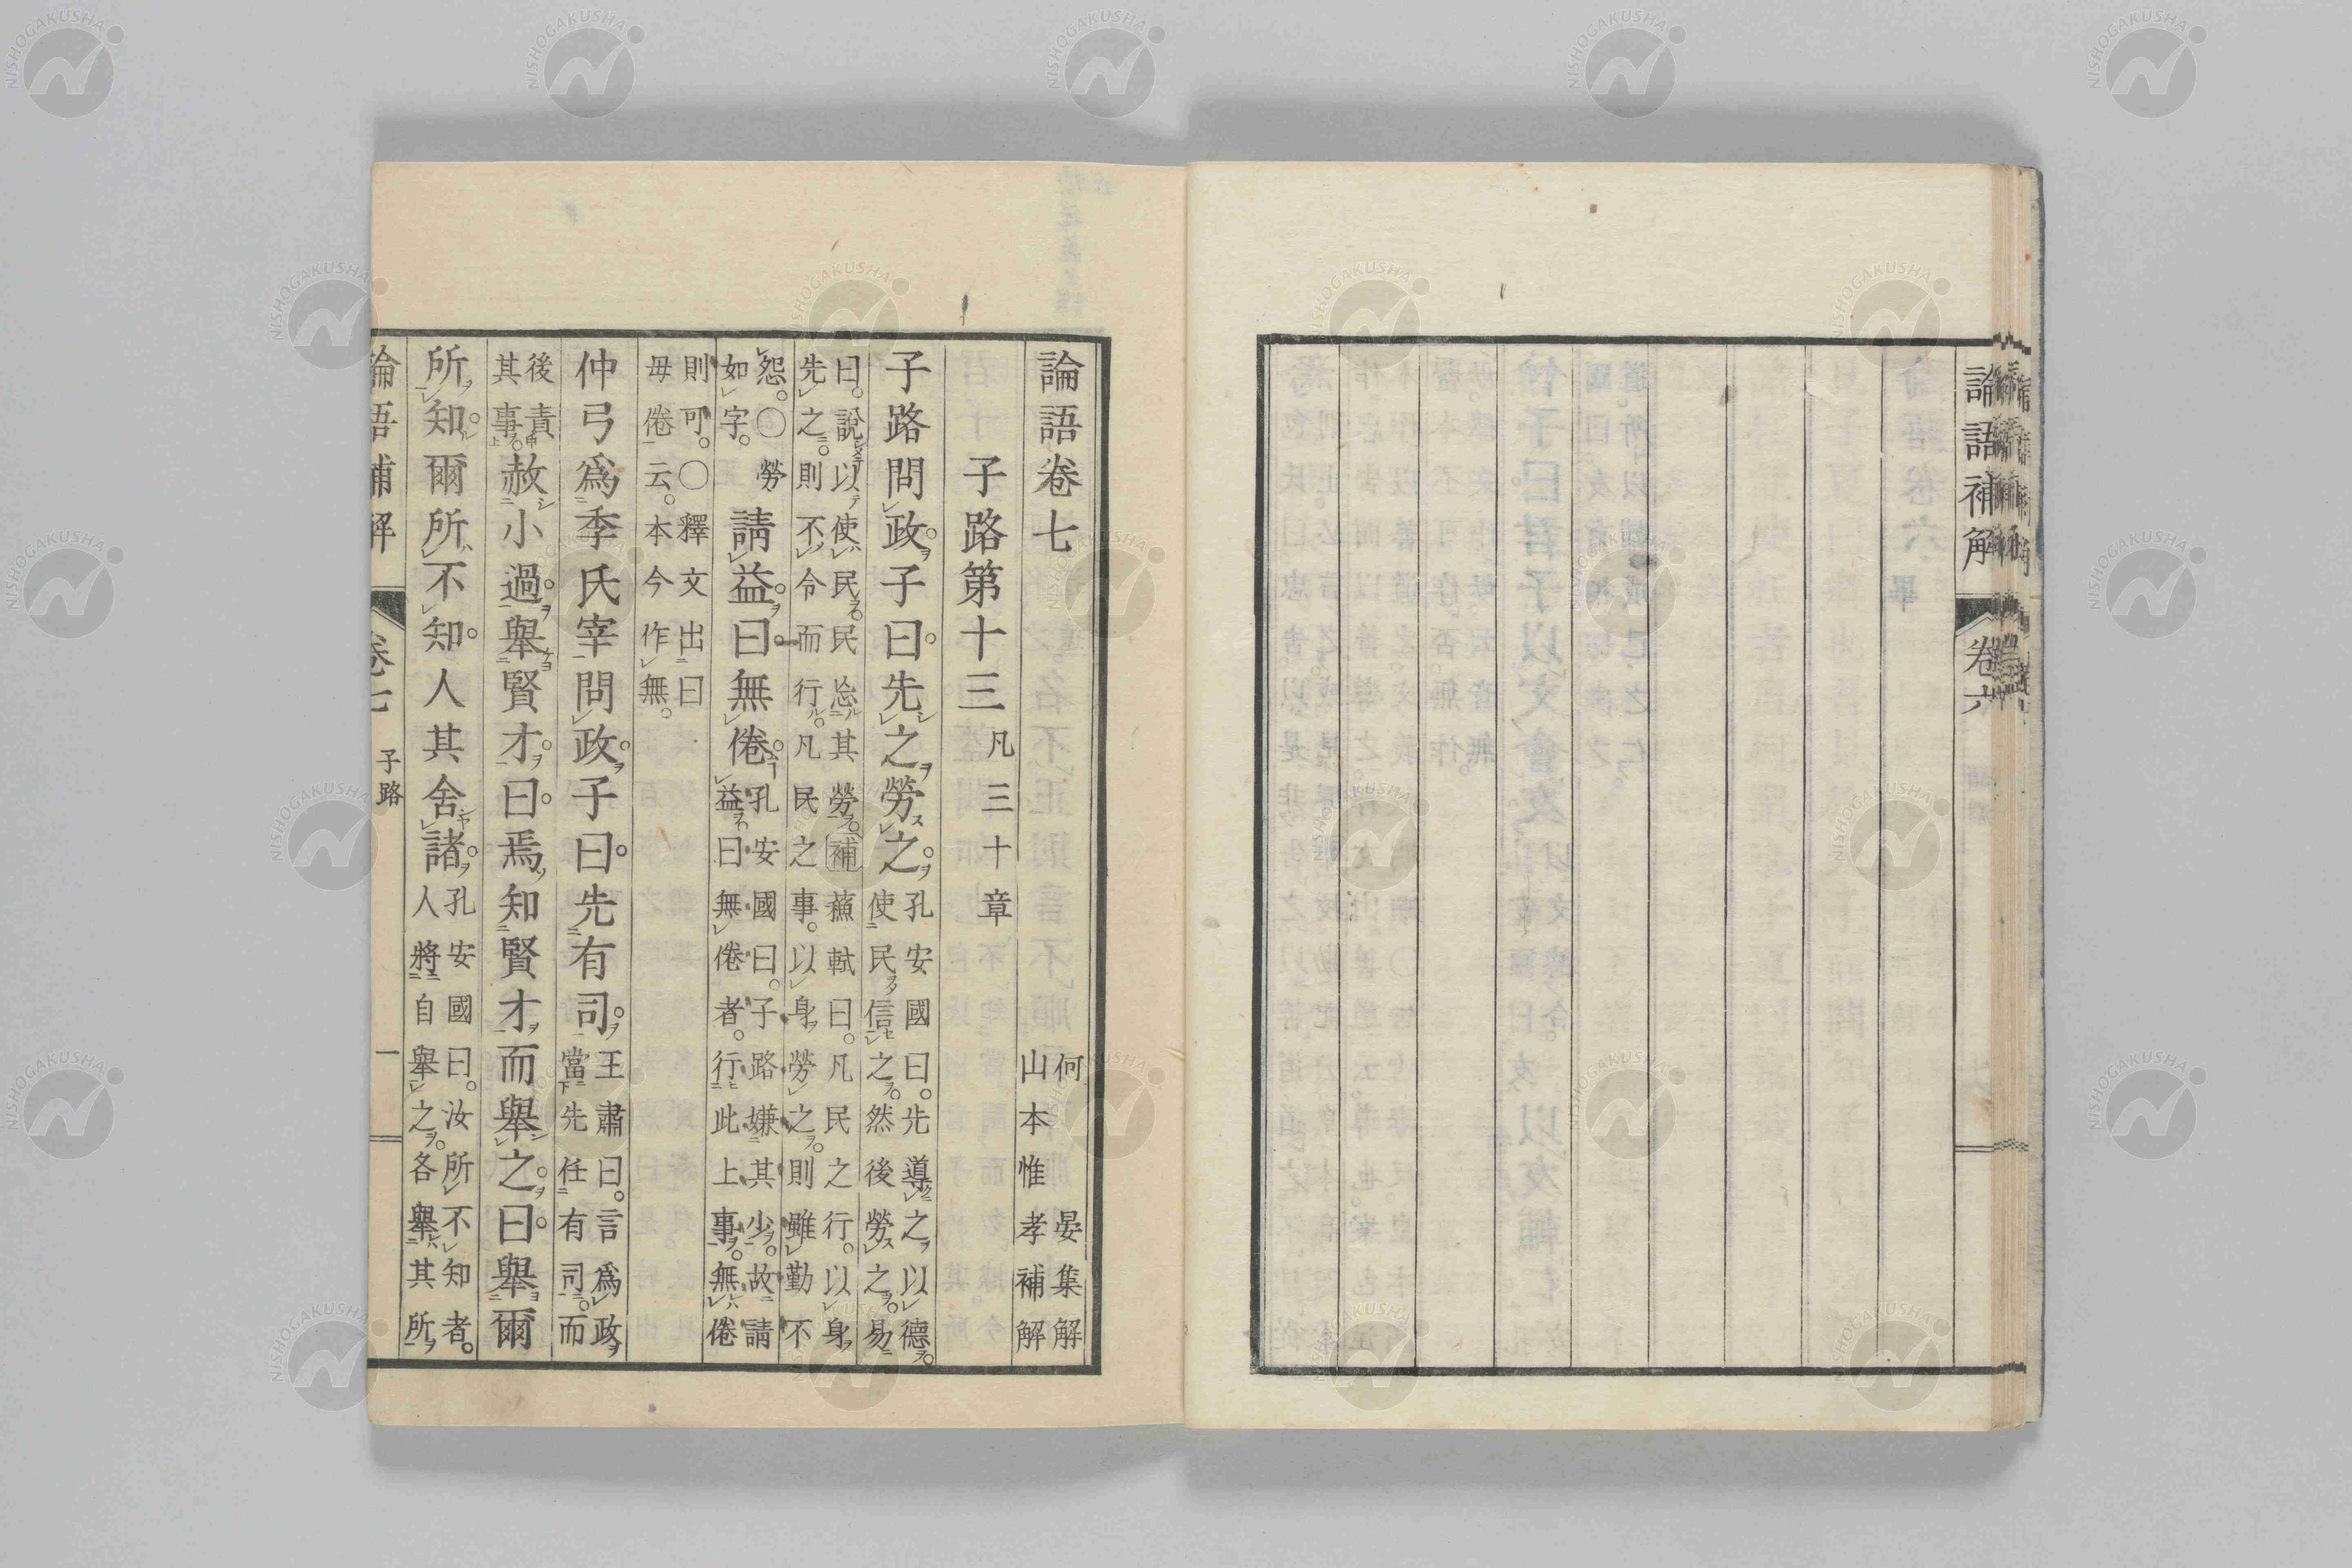 論語補解
卷六
論語卷七
何晏集解
山本惟孝補解
子路第十三凡三十章
子路問政子曰先之勞之孔安國曰。先導之以德。
使民信之。然後勞之。易
曰。說以使民民忘其勞。補蘇軾曰。凡民之行。以身
先之。則不令而行。凡民之事。以身勞之。則雖勤不
怨。〇勞
如字。
請益曰無倦孔安國曰。子路嫌其少。故請
益曰無倦者。行此上事。無倦
則可。〇釋文出曰
毋倦云。本今作無。
仲弓爲季氏宰問政子曰先有司王肅曰。言爲政
當先任有司。而
後責
其事。
赦小過舉賢才曰焉知賢才而舉之曰舉爾
所知爾所不知人其舍諸孔安國曰。汝所不知者。
人將自舉之。各舉其所
論語補解
卷七
子路
一